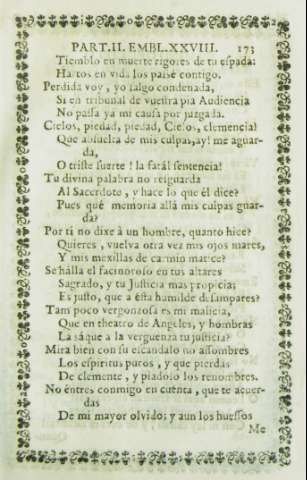 PART.II. EMBL.XXVIII. 173
Tiemblo en muerte rigores de tu espada:
Hartos en vida los paisè contigo.
Perdida voy, yo salgo condenada,
Si en tribunal de vuestra pia Audiencia
No passa ya mi causa por juzgada.
Cielos, piedad, piedad, Cielos, clemencia!
Que absuelta de mis culpas, ay! me aguar-
da,
O triste suerte! la fatal sentencia!
Tu divina palabra no resguarda
Al Sacerdote, y hace lo que él dice?
Pues què memoria allá mis culpas guar-
da?
Por tí no dixe à un hombre, quanto hice?
Quieres, vuelva otra vez mis ojos mares,
Y mis mexillas de carmin matice?
Se hálla el facinoroso en tus altares
Sagrado, y tu Justicia mas propicia;
Es justo, que a ésta humilde desampares?
Tam poco vergonzosa es mi malicia,
Que en theatro de Angeles, y hombras
La sáque a la verguenza tu justicia?
Mira bien con su escandalo no assombres
Los espiritus puros, y que pierdas
De clemente, y piadoso los renombres.
No éntres conmigo en cuenta, que te acuer-
das
De mi mayor olvido; y aun los huessos
Me